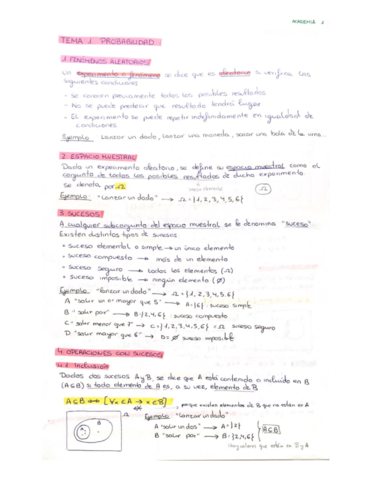 ACADEMIA 1
TEMA 1 PROBABILIDAD
1. FENÓMENOS ALEATORIOS
Un experimento o fenómeno se dice que es aleatorio si verifica las
siguientes condiciones
- Se conocen previamente todos los posibles resultados
- No se puede predecir que resultado tendrá lugar
- El experimento se puede repetir indefinidamente en igualdad de
condiciones
Ejemplo: Lanzar un dado, lanzar una moneda, sacar una bola de la urna...
2. ESPACIO MUESTRAL
Dado un experimento aleatorio, se define su espacio muestral como el
conjunto de todos los posibles resultados de dicho experimento.
Se denota por Ω
Ejemplo: "Lanzar un dado" → Ω = {1, 2, 3, 4, 5, 6}
3. SUCESOS
A cualquier subconjunto del espacio muestral se le denomina "suceso"
Existen distintos tipos de sucesos:
• Suceso elemental o simple → un único elemento
• Suceso compuesto → más de un elemento
• Suceso seguro → todos los elementos (Ω)
• Suceso imposible → ningún elemento (Ø)
Ejemplo: "lanzar un dado" → Ω = {1, 2, 3, 4, 5, 6}
A "salir un nº mayor que 5" → A = {6} suceso simple
B "salir par" → B = {2, 4, 6} suceso compuesto
C "salir menor que 7" → C = {1, 2, 3, 4, 5, 6} = Ω suceso seguro
D "salir mayor que 6" → D = Ø suceso imposible
4. OPERACIONES CON SUCESOS
4.1 Inclusión
Dados dos sucesos A y B, se dice que A está contenido o incluido en B
(A⊆B) si todo elemento de A es, a su vez, elemento de B
A⊆B ⟺ [∀x∈A → x∈B]
Ejemplo: "Lanzar un dado"
A "salir un dos" → A = {2}
B "salir par" → B = {2, 4, 6}
A⊆B